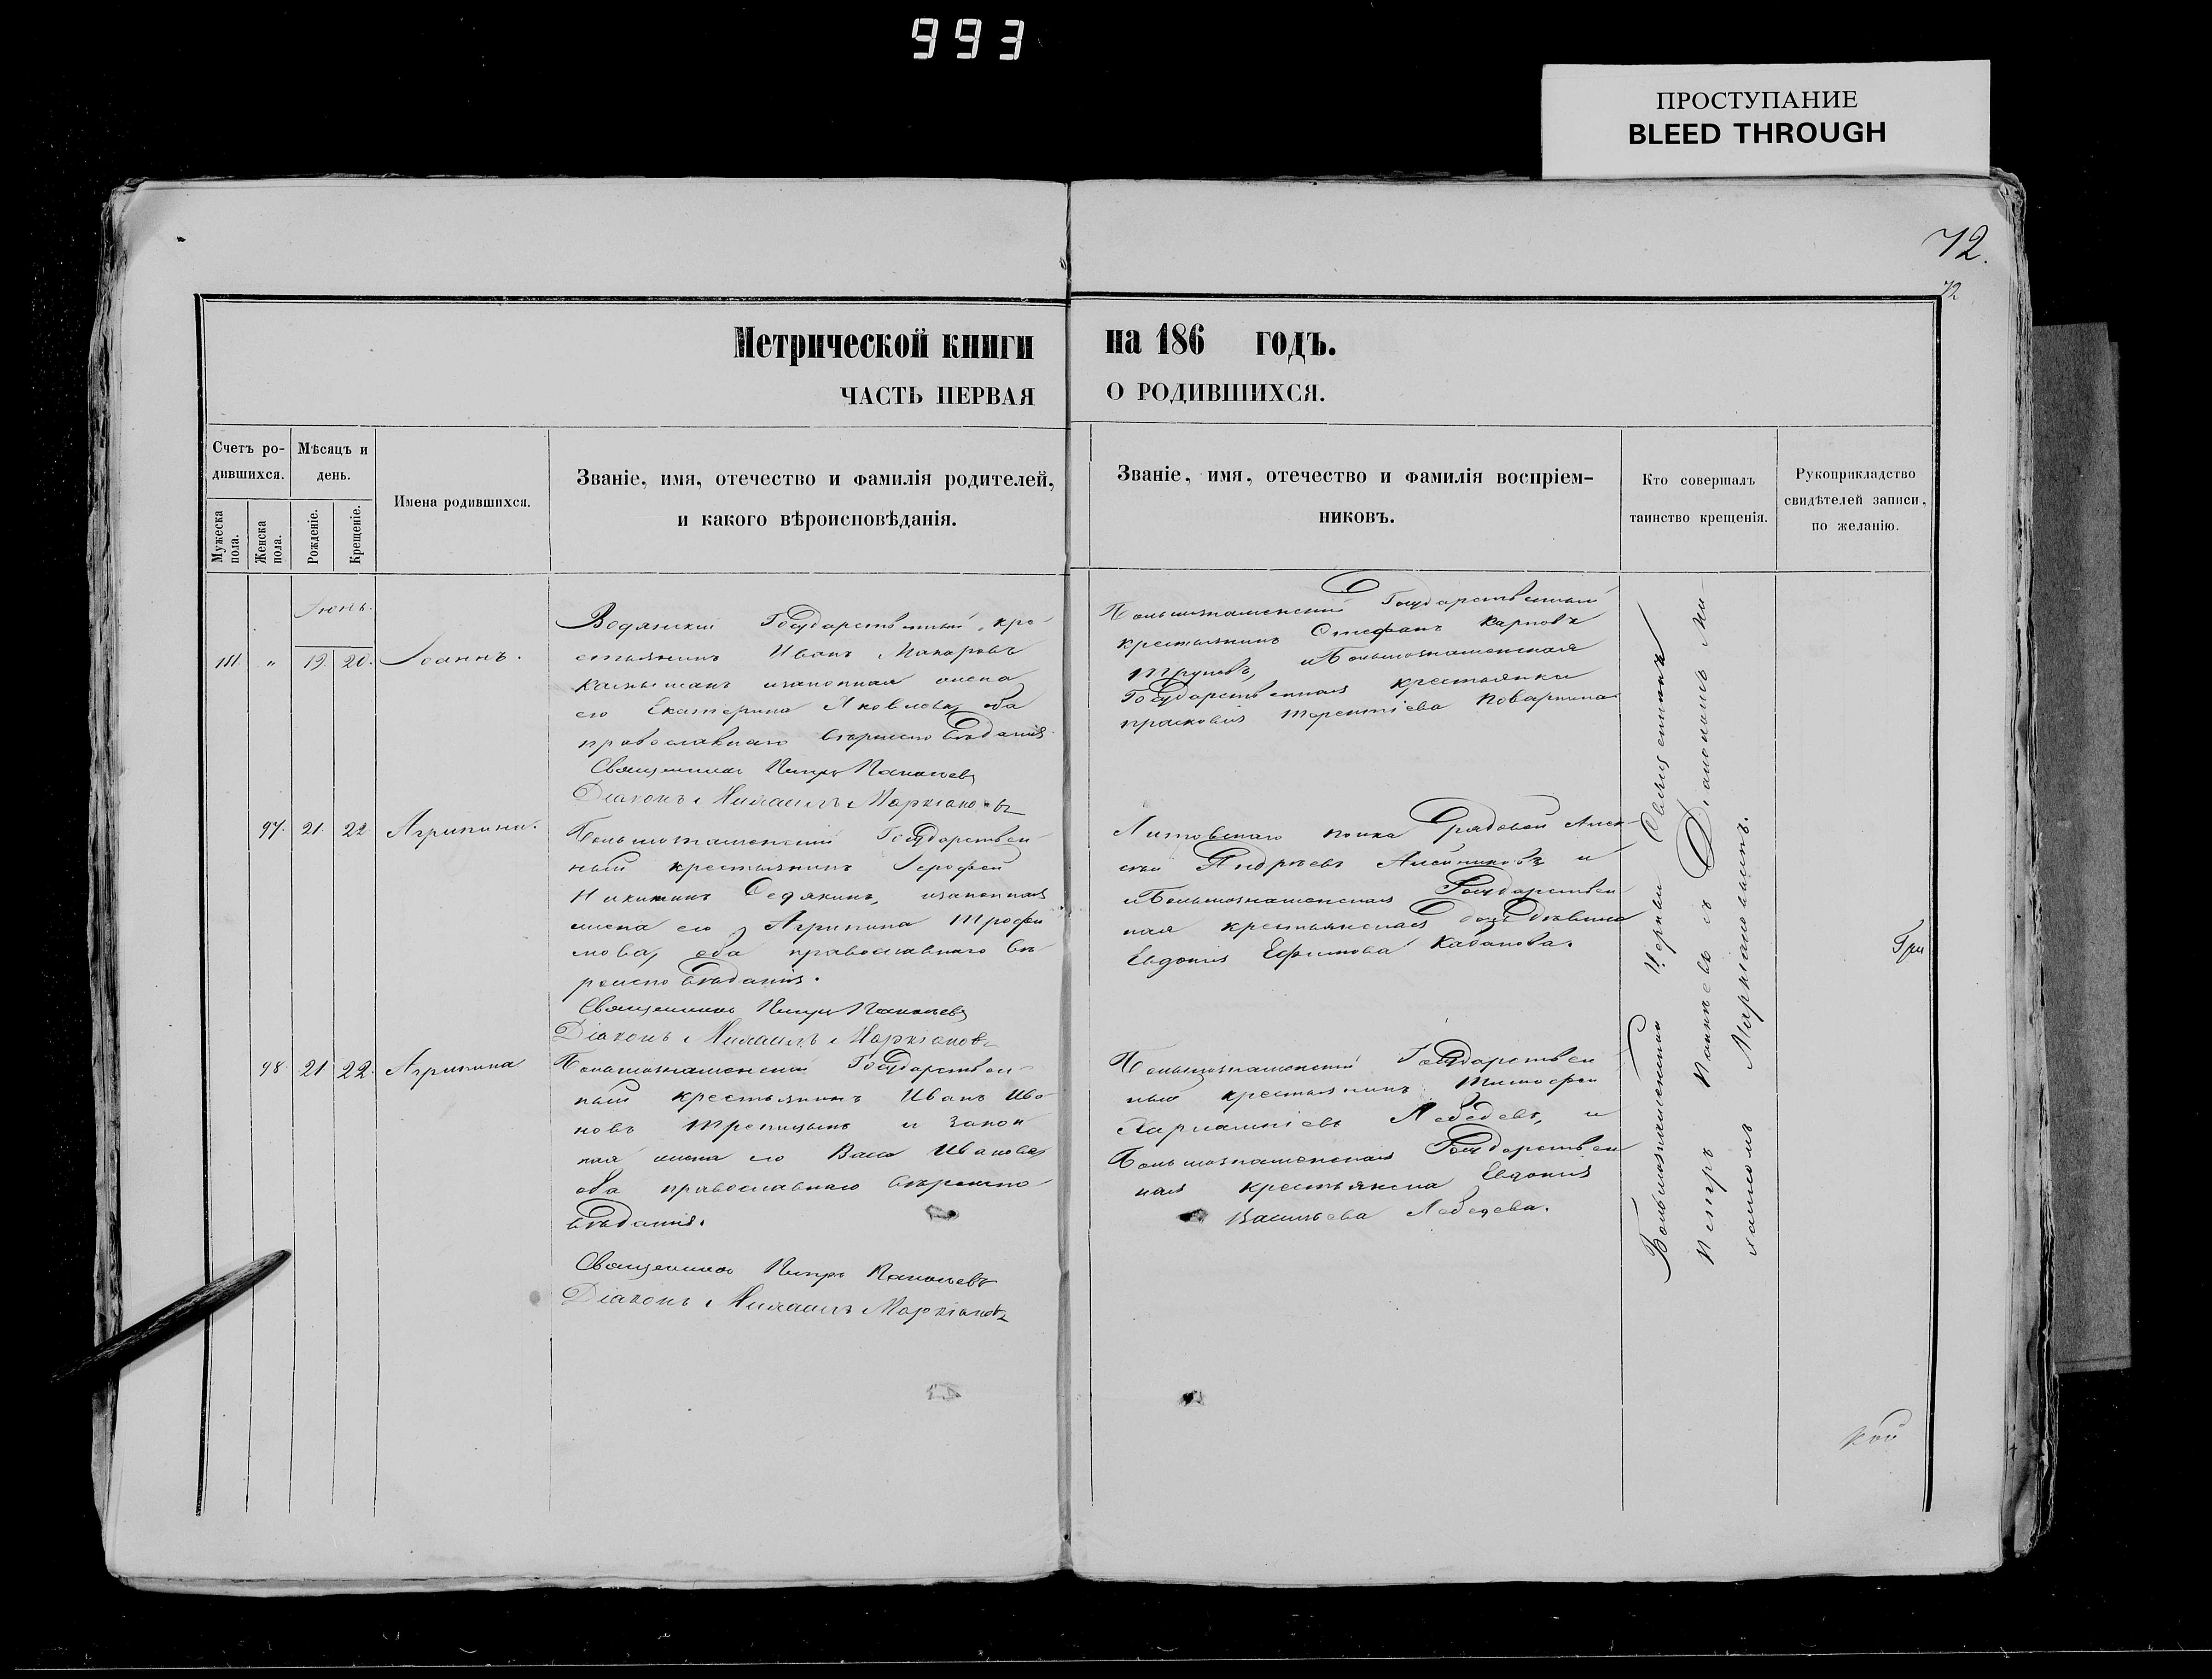 993
ПРОСТУПАНИЕ
BLEED THROUGH
72.
72
Метрической книги на 186 годъ.
ЧАСТЬ ПЕРВАЯ О РОДИВШИХСЯ.
Счетъ ро-
дившихся.
Мужеска
пола.
Женска
пола.
Мѣсяцъ и
день.
Рожденіе.
Крещеніе.
Имена родившихся.
Званіе, имя, отечество и фамилія родителей,
и какого вѣроисповѣданія.
Званіе, имя, отечество и фамилія воспріем-
никовъ.
Кто совершалъ
таинство крещенія.
Рукоприкладство
свидѣтелей записи,
по желанію.
Іюнь.
111. " 19. 20. Іоаннъ.
Водянскій Государственный кре
стьянинъ Иванъ Макаровъ
законная жена
его Екатерина Яковлева, оба
православнаго вѣроисповѣданія
Священникъ Петръ
Діаконъ Михаилъ Маркіановъ
Большознаменскій Государственный
крестьянинъ Стефанъ Карповъ
Труновъ, и Большознаменская
Государственная крестьянка
Прасковія Терентіева Поварнина
97. 21. 22 Агрипина.
Большознаменскій Государствен
ный крестьянинъ Іерофей
Никитинъ Седякинъ, и законная
жена его Агрипина Трофи
мова, оба православнаго вѣ
роисповѣданія.
Священникъ Петръ
Діаконъ Михаилъ Маркіановъ
Литовскаго полка Рядовой Алек
сѣй Андреевъ Алейниковъ и
Большознаменская Государствен
ная крестьянская дочь Дѣвица
Евдокія Ефимова Кабанова.
98 21 22. Агрипина
Большознаменскій Государствен
ный крестьянинъ Иванъ Ива
новъ и закон
ная жена его Васа Иванова
оба православнаго вѣроиспо
вѣданія.
Священникъ Петръ
Діаконъ Михаилъ Маркіановъ
Большознаменскій Государствен
ный крестьянинъ Тимофей
Харлампіевъ Лебедевъ, и
Большознаменская Государствен
ная крестьянка Евдокія
Васильева Лебедева.
Большознаменской Церкви Священникъ
Петръ съ Діакономъ Ми
хаиломъ Маркіановымъ.
Гри
кой